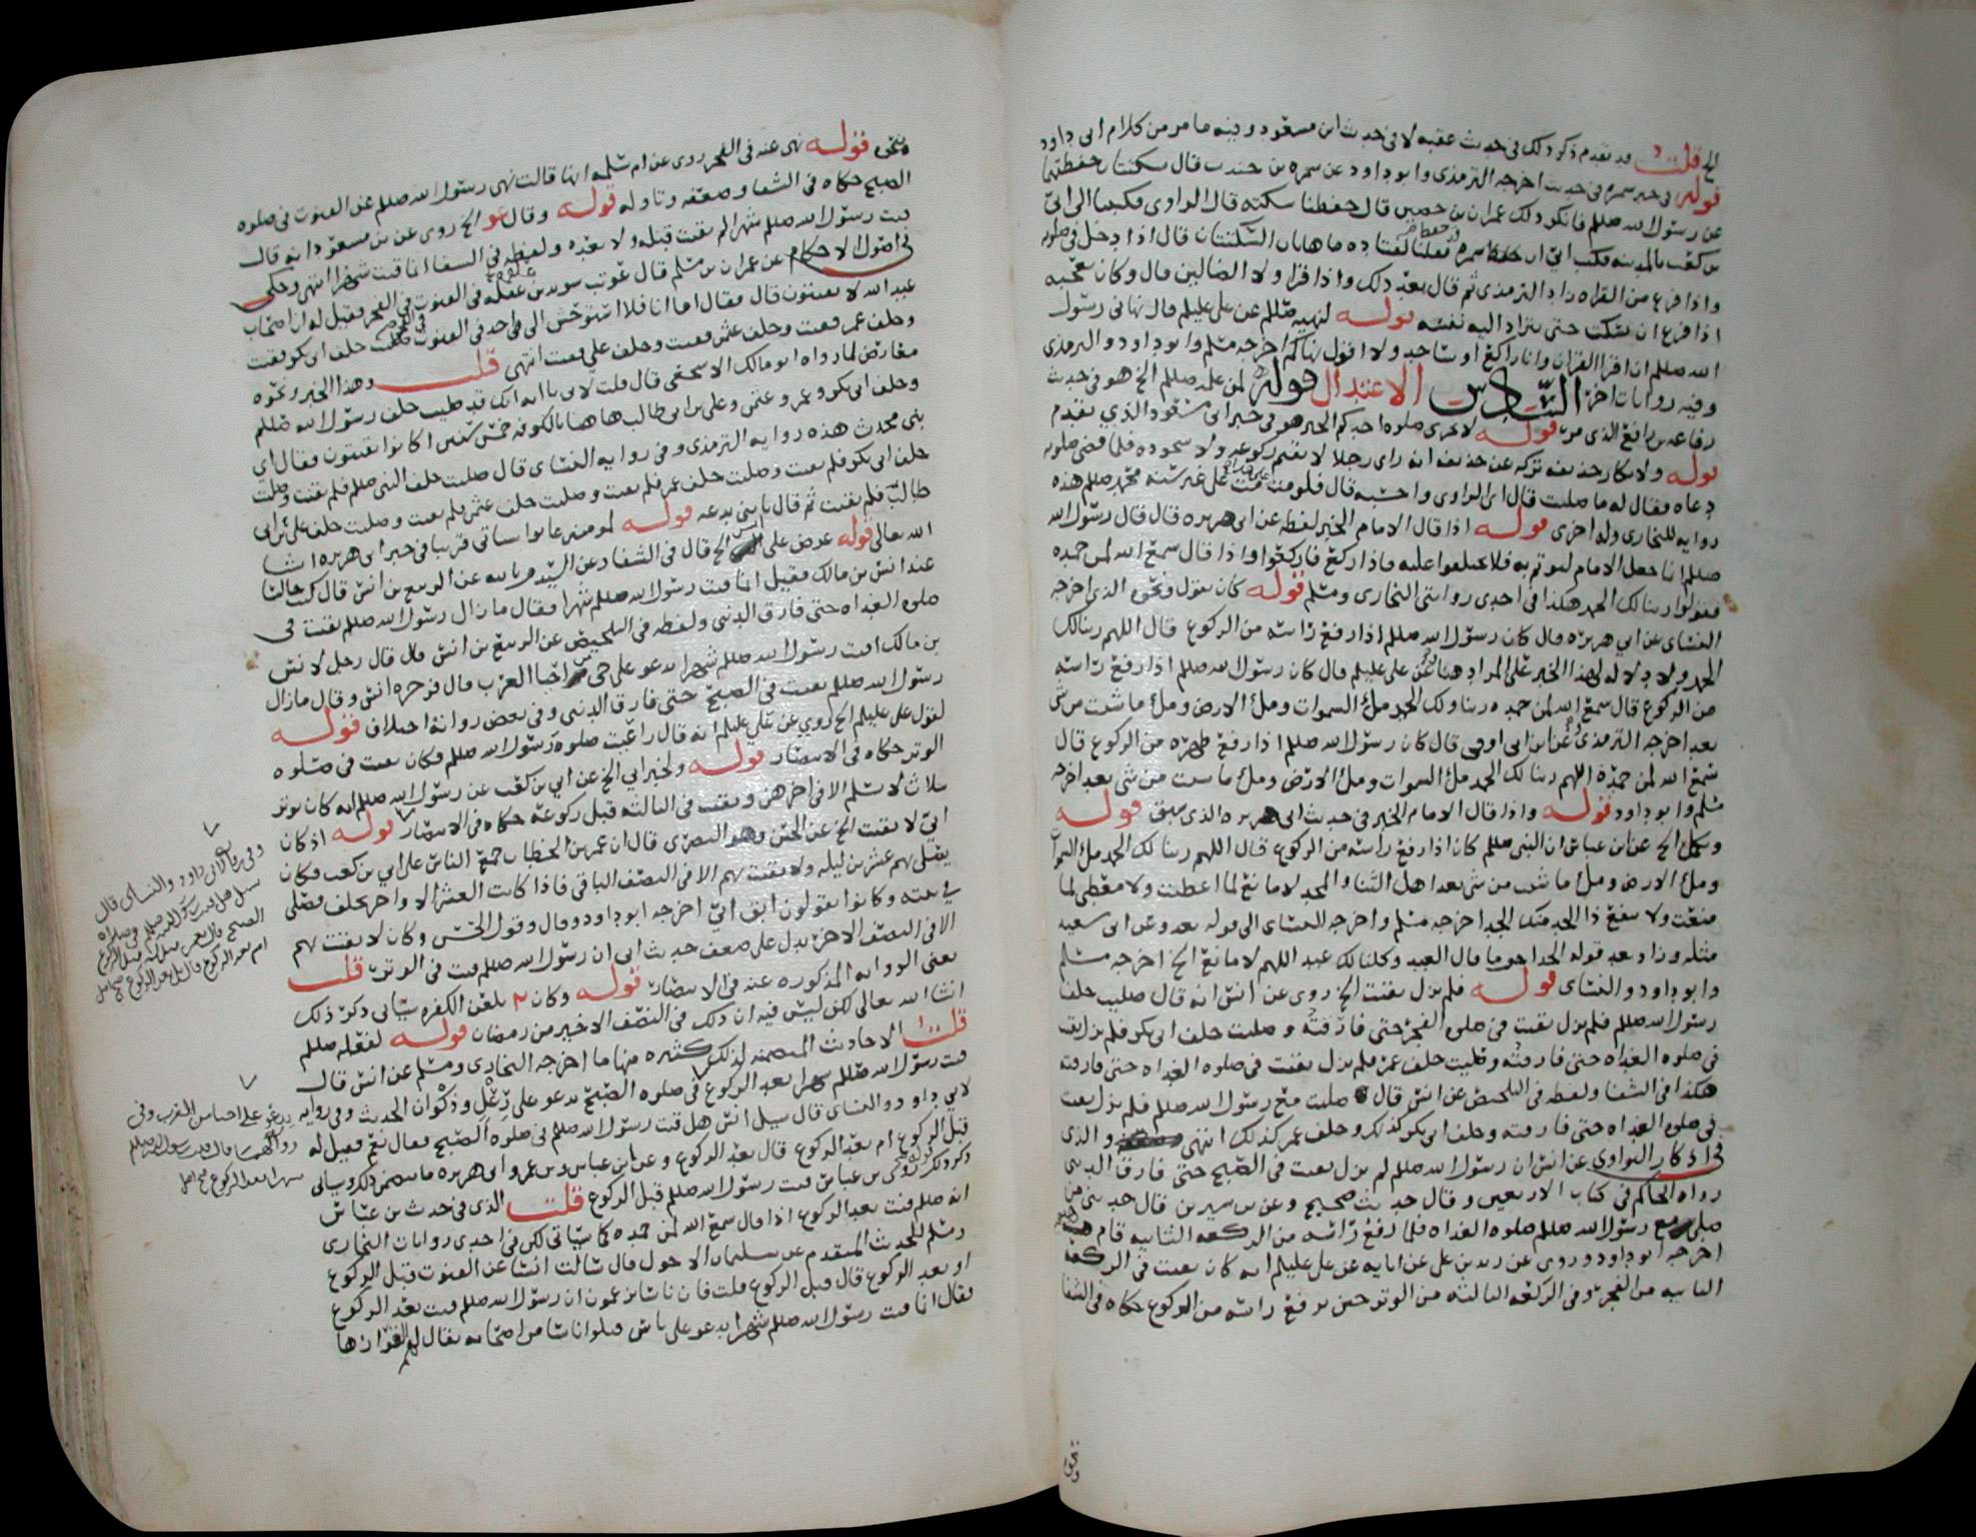 الخ قلت قد تقدم ذكر ذلك فى حديث عقبه لا فى حديث ابن مسعود وفيه ما مر من كلام ابى داود
قوله فى خبر سمره فى حديث اخرجه الترمذى وابو داود عن سمره بن جندب قال سكتتان حفظتهما
عن رسول الله صللم فانكر ذلك عمران بن حصين قال حفظنا سكته قال الراوى فكتبنا الى ابىّ
بن كعب بالمدينه فكتب ابىّ ان حفظ سمره فقلنا لقتاده ما هاتان السكتتان قال اذا دخل فى صلوته
واذا فرغ من القراه زاد الترمذى ثم قال بعد ذلك واذا قرا ولا الضالين قال وكان يعجبه
اذا فرغ ان يسكت حتى يتراد اليه نفسه قوله لنهيه صللم عن على عليلم قال نهانى رسول
الله صللم ان اقرا القران وانا راكع او ساجد ولا اقول نهاكم اخرجه مسلم وابو داود والترمذى
وفيه روايات اخر السّادس الاعتدال قوله لمن علمه صللم الخ هو فى حديث
رفاعه بن رافع الذى مر قوله لا تجزى صلوه احدكم الخبر هو فى خبر ابى مسعود الذى تقدم
قوله ولانكار حذيفه تركه عن حذيفه انه راى رجلا لا يقيم ركوعه ولا سجوده فلما قضى صلوته
دعاه فقال له ما صليت قال اى الراوى واحسبه قال فلو مت مت على غير سنه محمد صللم هذه
روايه للبخارى وله اخرى قوله اذا قال الامام الخبر لفظه عن ابى هريره قال قال رسول الله
صللم انما جعل الامام ليوتم به فلا تختلفوا عليه فاذا ركع فاركعوا واذا قال سمع الله لمن حمده
فقولوا ربنا لك الحمد هكذا فى احدى روايتى البخارى ومسلم قوله كان يقول ونحوه الذى اخرجه
النساى عن ابي هريره قال كان رسول الله صللم اذا رفع راسه من الركوع قال اللهم ربنا لك
الحمد ولا دلاله لهذا الخبر على المراد هنا وعن على عليلم قال كان رسول الله صللم اذا رفع راسه
من الركوع قال سمع الله لمن حمده ربنا ولك الحمد ملء السموات وملء الارض وملء ما شيت من شى
بعد اخرجه الترمذى وعن ابن ابى اوفى قال كان رسول الله صللم اذا رفع ظهره من الركوع قال
سمع الله لمن حمده اللهم ربنا لك الحمد ملء السموات وملء الارض وملء ما شيت من شى بعد اخرجه
مسلم وابو داود قوله واذا قال الامام الخبر فى حديث ابى هريره الذى سبق قوله
ويكمل الخ عن ابن عباس ان النبى صللم كان اذا رفع راسه من الركوع قال اللهم ربنا لك الحمد ملء السموات
وملء الارض وملء ما شيت من شى بعد اهل الثنا والمجد لا مانع لما اعطيت ولا معطى لما
منعت ولا ينفع ذا الجد منك الجد اخرجه مسلم واخرجه النساى الى قوله بعد وعن ابى سعيد
مثله وزاد بعد قوله المجد احق ما قال العبد وكلنا لك عبد اللهم لا مانع الخ اخرجه مسلم
وابو داود والنساى قوله فلم يزل يقنت الخ روى عن انس انه قال صليت خلف
رسول الله صللم فلم يزل يقنت فى صلوه الفجر حتى فارقته وصليت خلف ابى بكر فلم يزل يقنت
فى صلوه الغداه حتى فارقته وصليت خلف عمر فلم يزل يقنت فى صلوه الغداه حتى فارقته
هكذا فى الشفا ولفظه فى التلخيص عن انس قال صليت مع رسول الله صللم فلم يزل يقنت
فى صلوه الغداه حتى فارقته وخلف ابى بكر كذلك وخلف عمر كذلك انتهى والذى
فى اذكار النواوى عن انس ان رسول الله صللم لم يزل يقنت فى الصبح حتى فارق الدنيا
رواه الحاكم فى كتاب الاربعين وقال حديث صحيح وعن بن سيرين قال حدثنى من
صلى مع رسول الله صللم صلوه الغداه فلما رفع راسه من الركعه الثانيه قام هنيه
اخرجه ابو داود وروى عن زيد بن على عن ابايه عن على عليلم انه كان يقنت فى الركعه
الثانيه من الفجر وفى الركعه الثالثه من الوتر حين يرفع راسه من الركوع حكاه فى الشفا
ونحوه
ونحوه قوله نهى عنه فى الفجر روى عن ام سلمه انها قالت نهى رسول الله صللم عن القنوت فى صلوه
الصبح حكاه فى الشفا وضعفه وتاوله قوله وقال عو الخ روى عن بن مسعود انه قال
قنت رسول الله صللم شهرا لم يقنت قبله ولا بعده ولفظه فى الشفا انما قنت شهرا انتهى وحكى
فى اصول الاحكام عن عمران بن مسلم قال عوتب سويد بن غفله فى القنوت فى الفجر فقيل له ان اصحاب
عبد الله لا يقنتون قال فقال اما انا فلا استوحش الى احد فى القنوت فى الفجر صليت خلف ابى بكر فقنت
وخلف عمر فقنت وخلف عثمن فقنت وخلف على فقنت انتهى قلت وهذا الخبر ونحوه
معارض لما رواه ابو مالك الاشجعى قال قلت لابى يا ابه انك قد صليت خلف رسول الله صللم
وخلف ابى بكر وعمر وعثمن وعلى بن ابى طالب هاهنا بالكوفه خمس سنين اكانوا يقنتون فقال اى
بنى محدث هذه روايه الترمذى وفى روايه النساى قال صليت خلف النبى صللم فلم يقنت وصليت
خلف ابى بكر فلم يقنت وصليت خلف عمر فلم يقنت وصليت خلف عثمن فلم يقنت وصليت خلف على بن ابى
طالب فلم يقنت ثم قال يا بنى بدعه قوله لمومنين عانوا ستاتى قريبا فى خبر ابى هريره ان شا
الله تعالى قوله عرض على انس الخ قال فى الشفا وعن السيد م بالله عن الربيع بن انس قال كنت جالسا
عند انس بن مالك فقيل انما قنت رسول الله صللم شهرا فقال ما زال رسول الله صللم يقنت فى
صلوه الغداه حتى فارق الدنيى ولفظه فى التلخيص عن الربيع بن انس قال قال رجل لانس
بن مالك اقنت رسول الله صللم شهرا يدعو على حى من احيا العرب قال فزجره انس وقال ما زال
رسول الله صللم يقنت فى الصبح حتى فارق الدنيى وفى بعض رواته اختلاف قوله
لقول على عليلم الخ روي عن على عليلم انه قال راعيت صلوه رسول الله صللم فكان يقنت فى صلوه
الوتر حكاه فى الانتصار قوله ولخبر ابي الخ عن ابي بن كعب عن رسول الله صللم انه كان يوتر
بثلاث لا يسلم الا فى اخرهن ويقنت فى الثالثه قبل ركوعه حكاه فى الانتصار قوله اذ كان
ابىّ لا يقنت الخ عن الحسن وهو البصرى قال ان عمر بن الخطاب جمع الناس على ابي بن كعب فكان
يصلى بهم عشرين ليله ولا يقنت بهم الا فى النصف الباقى فاذا كانت العشر الاواخر تخلف فصلى
في بيته وكانوا يقولون ابق ابىّ اخرجه ابو داود وقال وقول الحسن وكان لا يقنت بهم
الا فى النصف الاخر يدل على ضعف حديث ابى ان رسول الله صللم قنت فى الوتر قلت
يعنى الروايه المذكوره عنه فى الانتصار قوله وكان ٢ يلعن الكفره سياتى ذكر ذلك
ان شا الله تعالى لكن ليس فيه ان ذلك فى النصف الاخير من رمضان قوله لفعله صللم
قلت الاحاديث المتضمنه لذلك كثيره منها ما اخرجه البخارى ومسلم عن انس قال
قنت رسول الله صللم شهرا بعد الركوع فى صلوه الصبح يدعو على رعل وذكوان الحديث وفى روايه
لابي داود والنساى قال سيل انس هل قنت رسول الله صللم فى صلوه الصبح فقال نعم فقيل له
قبل الركوع ام بعد الركوع قال بعد الركوع وعن ابن عباس وبن عمر وابى هريره ما يتضمن ذلك وسياتى
ذكر ذلك وروى بن عباس قنت رسول الله صللم قبل الركوع قلت الذى فى حديث بن عباس
انه صللم قنت بعد الركوع اذا قال سمع الله لمن حمده كما سياتى لكن فى احدى روايات البخارى
ومسلم للحديث المتقدم عن سليمان الاحول قال سالت انسا عن القنوت قبل الركوع
او بعد الركوع قال قبل الركوع قلت فان ناسا يزعمون ان رسول الله صللم قنت بعد الركوع
فقال انما قنت رسول الله صللم شهرا يدعو على ناس قتلوا ناسا من اصحابه يقال لهم القرّا زها
وفى روايه لابى داود والنساى قال
سيل هل قنت رسول الله صللم فى صلاه
الصبح قال نعم قيل له قبل الركوع
ام بعد الركوع قال بل بعد الركوع صح اصل
يدعو على احيا من العرب وفى
روايه لهما قال قنت رسول الله صللم
شهرا بعد الركوع صح اصل